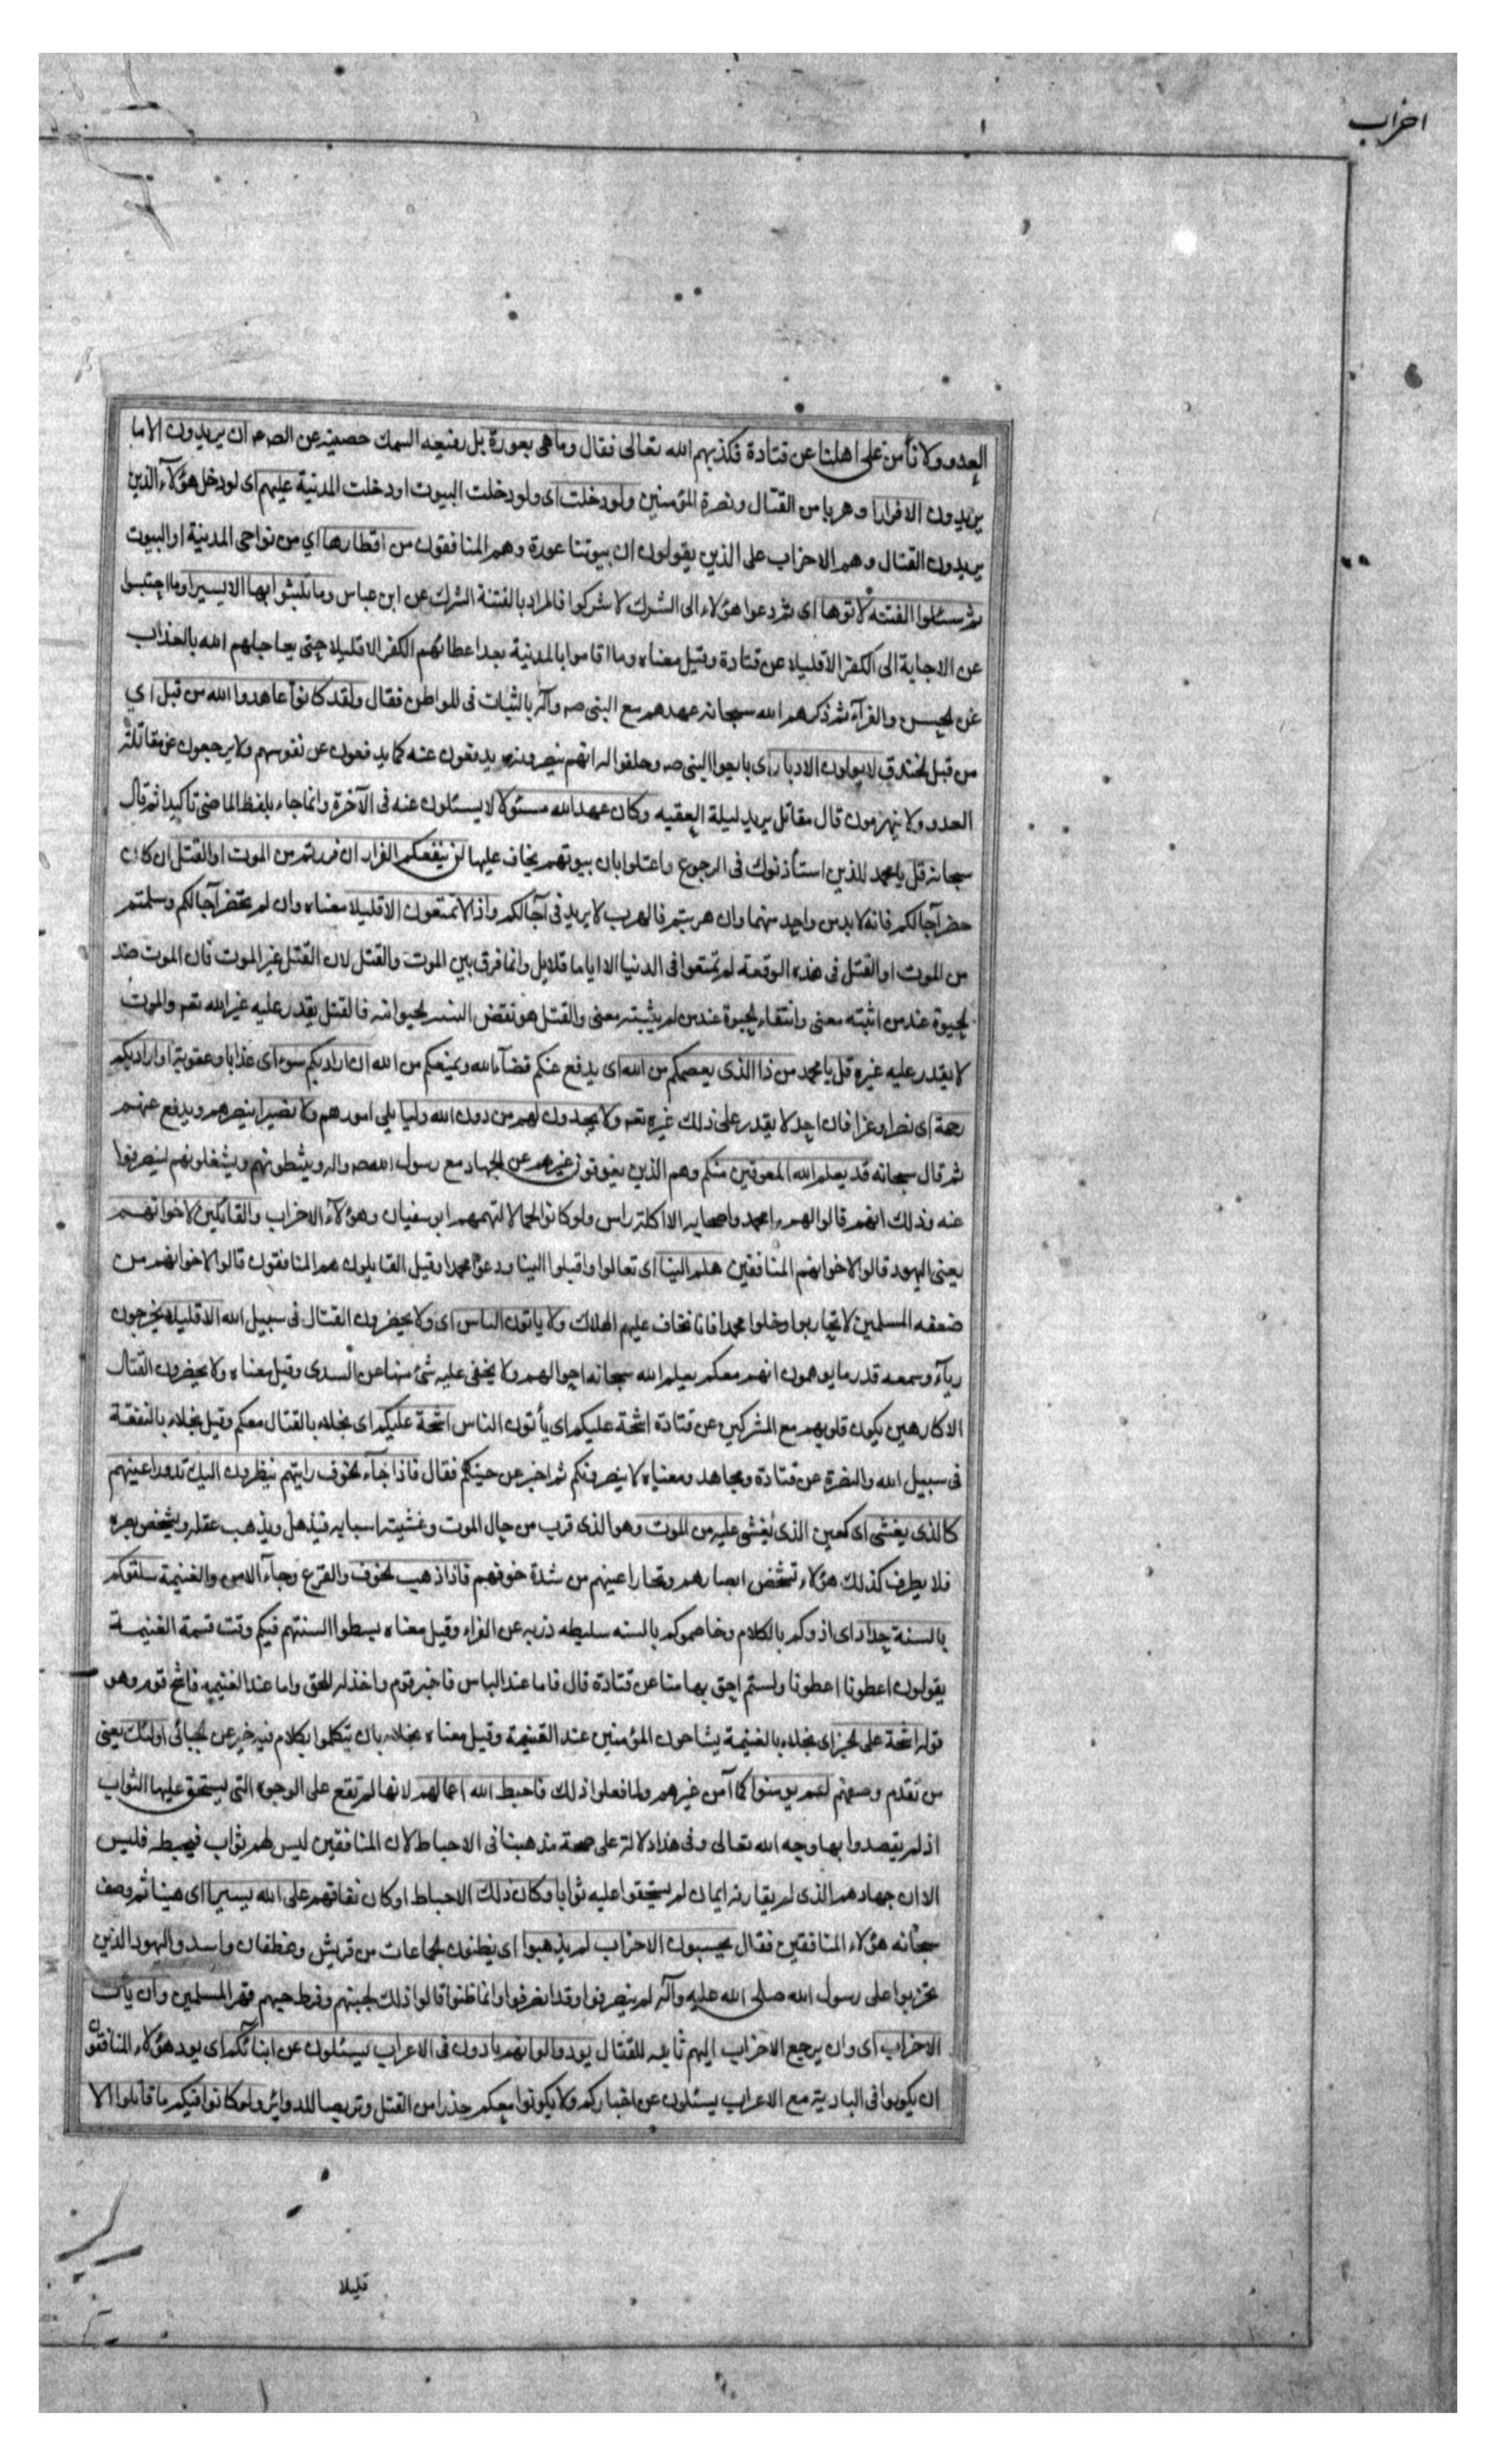 احزاب
العدو ولا نأمن على اهلنا عن قتادة فكذبهم الله تعالى فقال وما هى بعورة بل رفيعه السمك حصينه عن الصم ان يريدون الا ما
يريدون الا فرارا وهربا من القتال ونصرة المؤمنين ولو دخلت اى ولو دخلت البيوت او دخلت المدينة عليهم اى لو دخل هؤلآء الذين
يريدون القتال وهم الاحزاب على الذين يقولون ان بيوتنا عورة وهم المنافقون من اقطارها اي من نواحى المدينة او البيوت
ثم سئلوا الفتنه لاتوها اى ثم دعوا هؤلاء الى الشرك لاشركوا فالمراد بالفتنة الشرك عن ابن عباس وما تلبثوا بها الا يسيرا وما احتبسوا
عن الاجابة الى الكفر الا قليلا عن قتادة وقيل معناه وما اقاموا بالمدينة بعد اعطائهم الكفر الا قليلا حتى يعاجلهم الله بالعذاب
عن الحسن والفرآء ثم ذكرهم الله سبحانه عهدهم مع النبى صه وآله بالثبات فى المواطن فقال ولقد كانوا عاهدوا الله من قبل اي
من قبل الخندق لا يولون الادبار اى بايعوا النبى صه وحلفوا له انهم ينصرونه يدفعون عنه كما يدفعون عن نفوسهم ولا يرجعون عن مقاتلة
العدو ولا ينهزمون قال مقاتل يريد ليلة العقبه وكان عهد الله مسئولا لا يسئلون عنه فى الآخرة وانما جاء بلفظ الماضى تاكيدا ثم قال
سبحانه قل يا محمد للذين استأذنوك فى الرجوع واعتلوا بان بيوتهم يخاف عليها لن ينفعكم الفرار ان فررتم من الموت او القتل ان كان
حضر آجالكم فانه لا بد من واحد منهما وان هربتم فالهرب لا يزيد فى آجالكم واذا لا تمتعون الا قليلا معناه وان لم تحضر آجالكم وسلمتم
من الموت او القتل فى هذه الوقعة لم تمتعوا فى الدنيا الا اياما قلايل وانما فرق بين الموت والقتل لان القتل غير الموت فان الموت ضد
الحيوة عند من اثبته معنى وانتفاء الحيوة عند من لم يثبته معنى والقتل هو نقض البنيه الحيوانيه فالقتل يقدر عليه غير الله تعه والموت
لا يقدر عليه غيره قل يا محمد من ذا الذى يعصمكم من الله اى يدفع عنكم قضآء الله ويمنعكم من الله ان اراد بكم سوء اى عذابا وعقوبة او اراد بكم
رحمة اى نصرا وعزا فان احد لا يقدر على ذلك غيره تعه ولا يجدون لهم من دون الله وليا يلى امورهم ولا نصيرا ينصرهم ويدفع عنهم
ثم قال سبحانه قد يعلم الله المعوقين منكم وهم الذين يعوقون غيرهم عن الجهاد مع رسول الله صه واله ويثبطونهم ويشغلونهم لينصرفوا
عنه وذلك انهم قالوا لهم ما محمد واصحابه الا اكلة راس ولو كانوا لحما لالتهمهم ابو سفيان وهؤلآء الاحزاب والقائلين لاخوانهم
يعنى اليهود قالوا لاخوانهم المنافقين هلم الينا اى تعالوا واقبلوا الينا ودعوا محمدا وقيل القايلون هم المنافقون قالوا لاخوانهم من
ضعفه المسلمين لا تحاربوا وخلوا محمدا فانا نخاف عليهم الهلاك ولا ياتون الباس اى ولا يحضرون القتال فى سبيل الله الا قليلا يخرجون
ريآء وسمعه قدر ما يوهمون انهم معكم يعلم الله سبحانه احوالهم ولا يخفى عليه شئ منها عن السدى وقيل معناه ولا يحضرون القتال
الا كارهين يكون قلوبهم مع المشركين عن قتادة اشحة عليكم اى يأتون الناس اشحة عليكم اى بخلاء بالقتال معكم وقيل بخلاء بالنفقة
فى سبيل الله والنصرة عن قتادة ومجاهد ومعناه لا ينصرونكم ثم اخبر عن جبنهم فقال فاذا جآء الخوف رايتهم ينظرون اليك تدور اعينهم
كالذى يغشى اى كعين الذى يغشى عليه من الموت وهو الذى قرب من حال الموت وغشيته اسبابه فيذهل ويذهب عقله ويشخص بصره
فلا يطرف كذلك هؤلاء تشخص ابصارهم وتحار اعينهم من شدة خوفهم فاذا ذهب الخوف والفزع وجآء الامن والغنيمة سلقوكم
بالسنة حداد اى اذوكم بالكلام وخاصموكم بالسنه سليطه ذربه عن الفراء وقيل معناه بسطوا السنتهم فيكم وقت قسمة الغنيمة
يقولون اعطونا اعطونا ولستم احق بها منا عن قتادة قال فاما عند الباس فاجبن قوم واخذله للحق واما عند الغنيمه فاشح قوم وهو
قوله اشحة على الخير اى بخلاء بالغنيمة يشاحون المؤمنين عند الغنيمة وقيل معناه بخلاء بان يتكلموا بكلام فيه خير عن الجبائى اولئك يعنى
من تقدم وصفهم لم يومنوا كما آمن غيرهم ولما فعلوا ذلك فاحبط الله اعمالهم لانها لم تقع على الوجوه التى يستحق عليها الثواب
اذ لم يقصدوا بها وجه الله تعالى وفى هذا دلالة على صحة مذهبنا فى الاحباط لان المنافقين ليس لهم ثواب فيحبط فليس
الا ان جهادهم الذى لم يقارنه ايمان لم يستحقوا عليه ثوابا وكان ذلك الاحباط او كان نفاقهم على الله يسيرا اى هينا ثم وصف
سبحانه هؤلاء المنافقين فقال يحسبون الاحزاب لم يذهبوا اى يظنون الجماعات من قريش وغطفان واسد واليهود الذين
تحزبوا على رسول الله صلى الله عليه وآله لم ينصرفوا وقد انصرفوا وانما ظنوا قالوا ذلك لجبنهم وفرط حبهم قهر المسلمين وان يأت
الاحزاب اى وان يرجع الاحزاب اليهم ثانيه للقتال يودوا لو انهم بادون فى الاعراب يسئلون عن ابنائكم اى يود هؤلاء المنافقون
ان يكونوا فى البادية مع الاعراب يسئلون عن اخباركم ولا يكونوا معكم حذرا من القتل وتربصا للدوائر ولو كانوا فيكم ما قاتلوا الا
قليلا